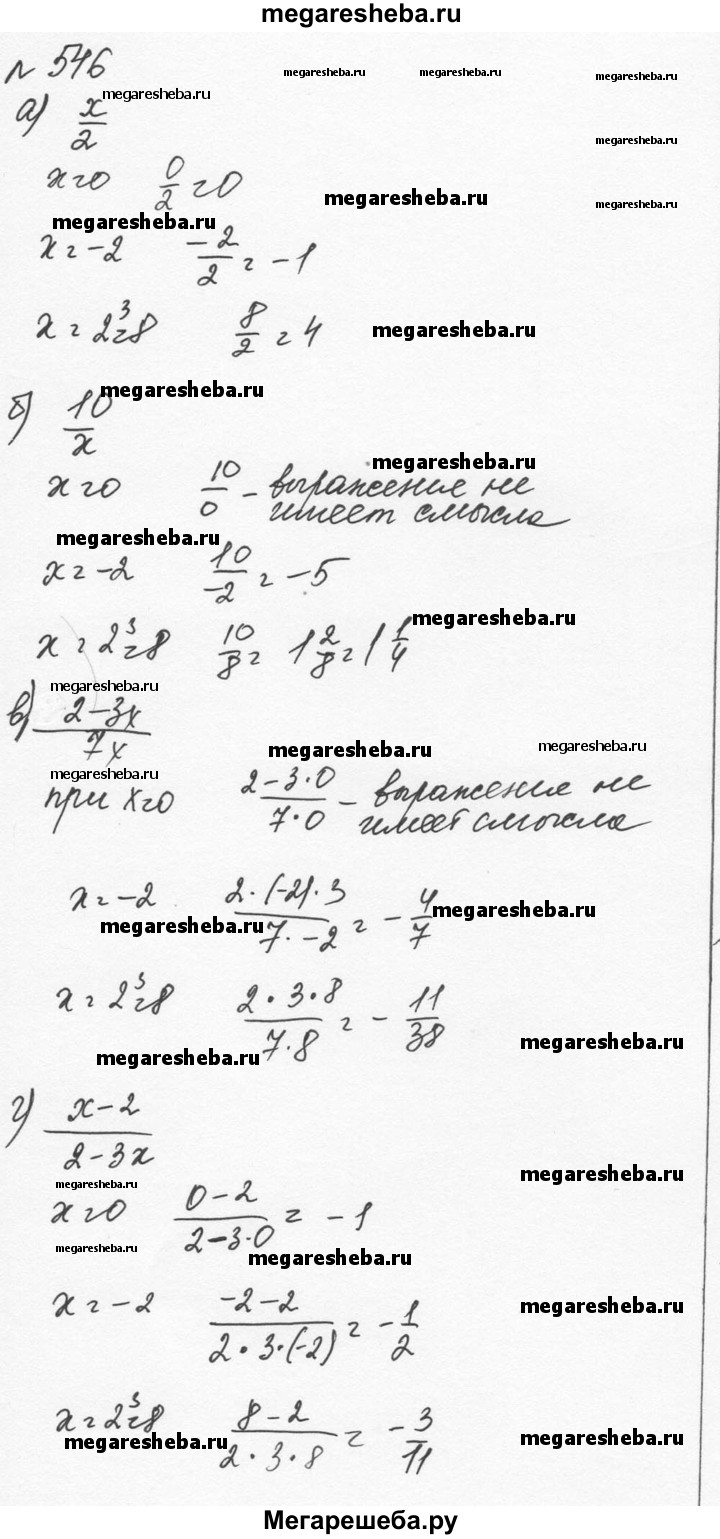 megaresheba.ru
№ 546
megaresheba.ru megaresheba.ru megaresheba.ru
megaresheba.ru
а) x/2
megaresheba.ru
x=0 0/2=0
megaresheba.ru
megaresheba.ru
megaresheba.ru
x=-2 -2/2=-1
x=2³=8 8/2=4
megaresheba.ru
megaresheba.ru
б) 10/x
megaresheba.ru
x=0 10/0 - выражение не
имеет смысла
megaresheba.ru
x=-2 10/-2=-5
megaresheba.ru
x=2³=8 10/8= 1 2/8=1 1/4
megaresheba.ru
в) 2-3x/7x
megaresheba.ru megaresheba.ru
megaresheba.ru
при x=0 2-3·0/7·0 - выражение не
имеет смысла
x=-2 2·(-2)·3/7·-2=-4/7
megaresheba.ru megaresheba.ru
x=2³=8 2·3·8/7·8=-11/38
megaresheba.ru
megaresheba.ru
г) x-2/2-3x
megaresheba.ru
megaresheba.ru
x=0 0-2/2-3·0=-1
megaresheba.ru
megaresheba.ru
x=-2 -2-2/2·3·(-2)=-1/2
megaresheba.ru
x=2³=8 8-2/2·3·8=-3/11
megaresheba.ru megaresheba.ru
Мегарешеба.ру